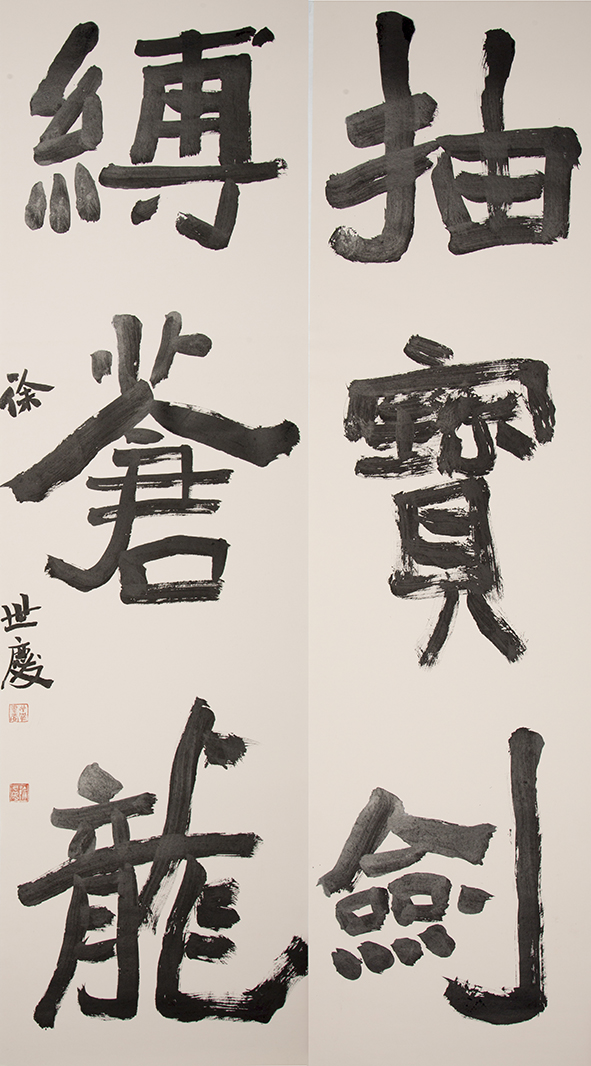 抽寶劍
縛蒼龍
徐世慶